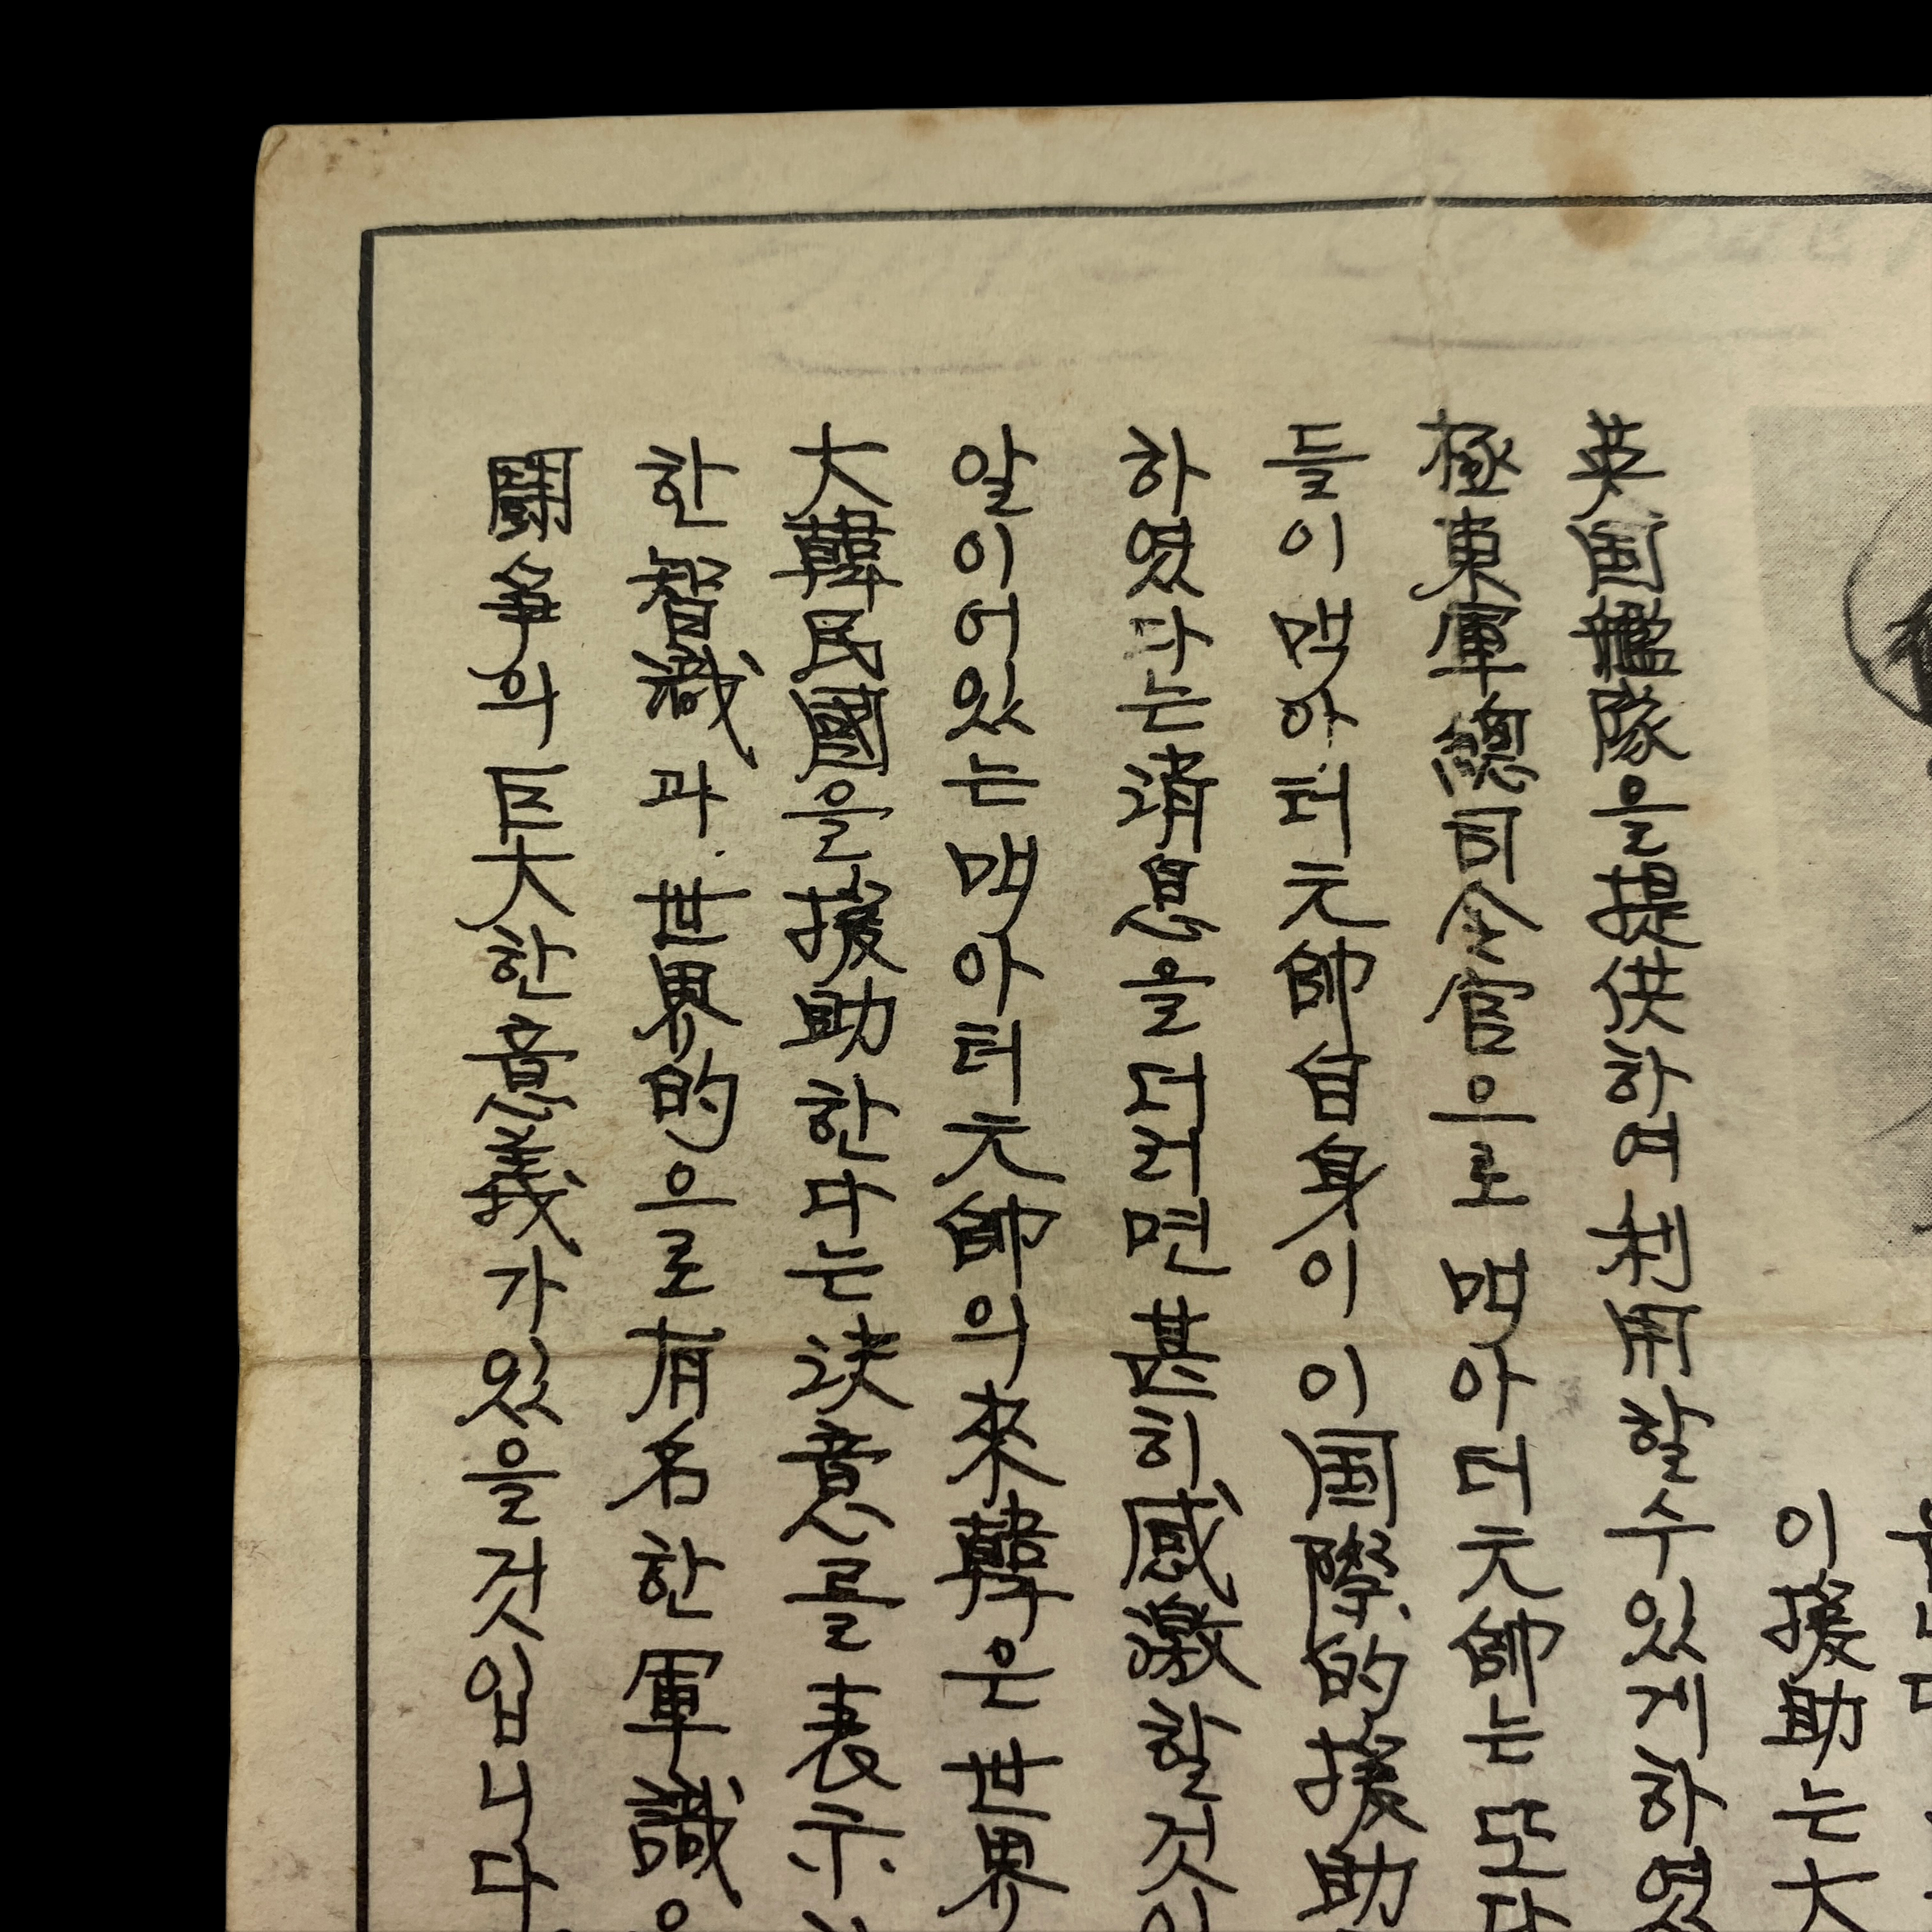 이援助는大
英国艦隊을提供하여利用할수있게하였
極東軍總司令官으로맥아더元帥는모다
들이맥아더元帥自身이이国際的援助
하였다는消息을더러면甚히感激할것이
알이어있는맥아더元帥의來韓은世界
大韓民國을援助한다는決意를表示
한智識과世界的으로有名한軍識
鬪爭의巨大한意義가있을것입니다